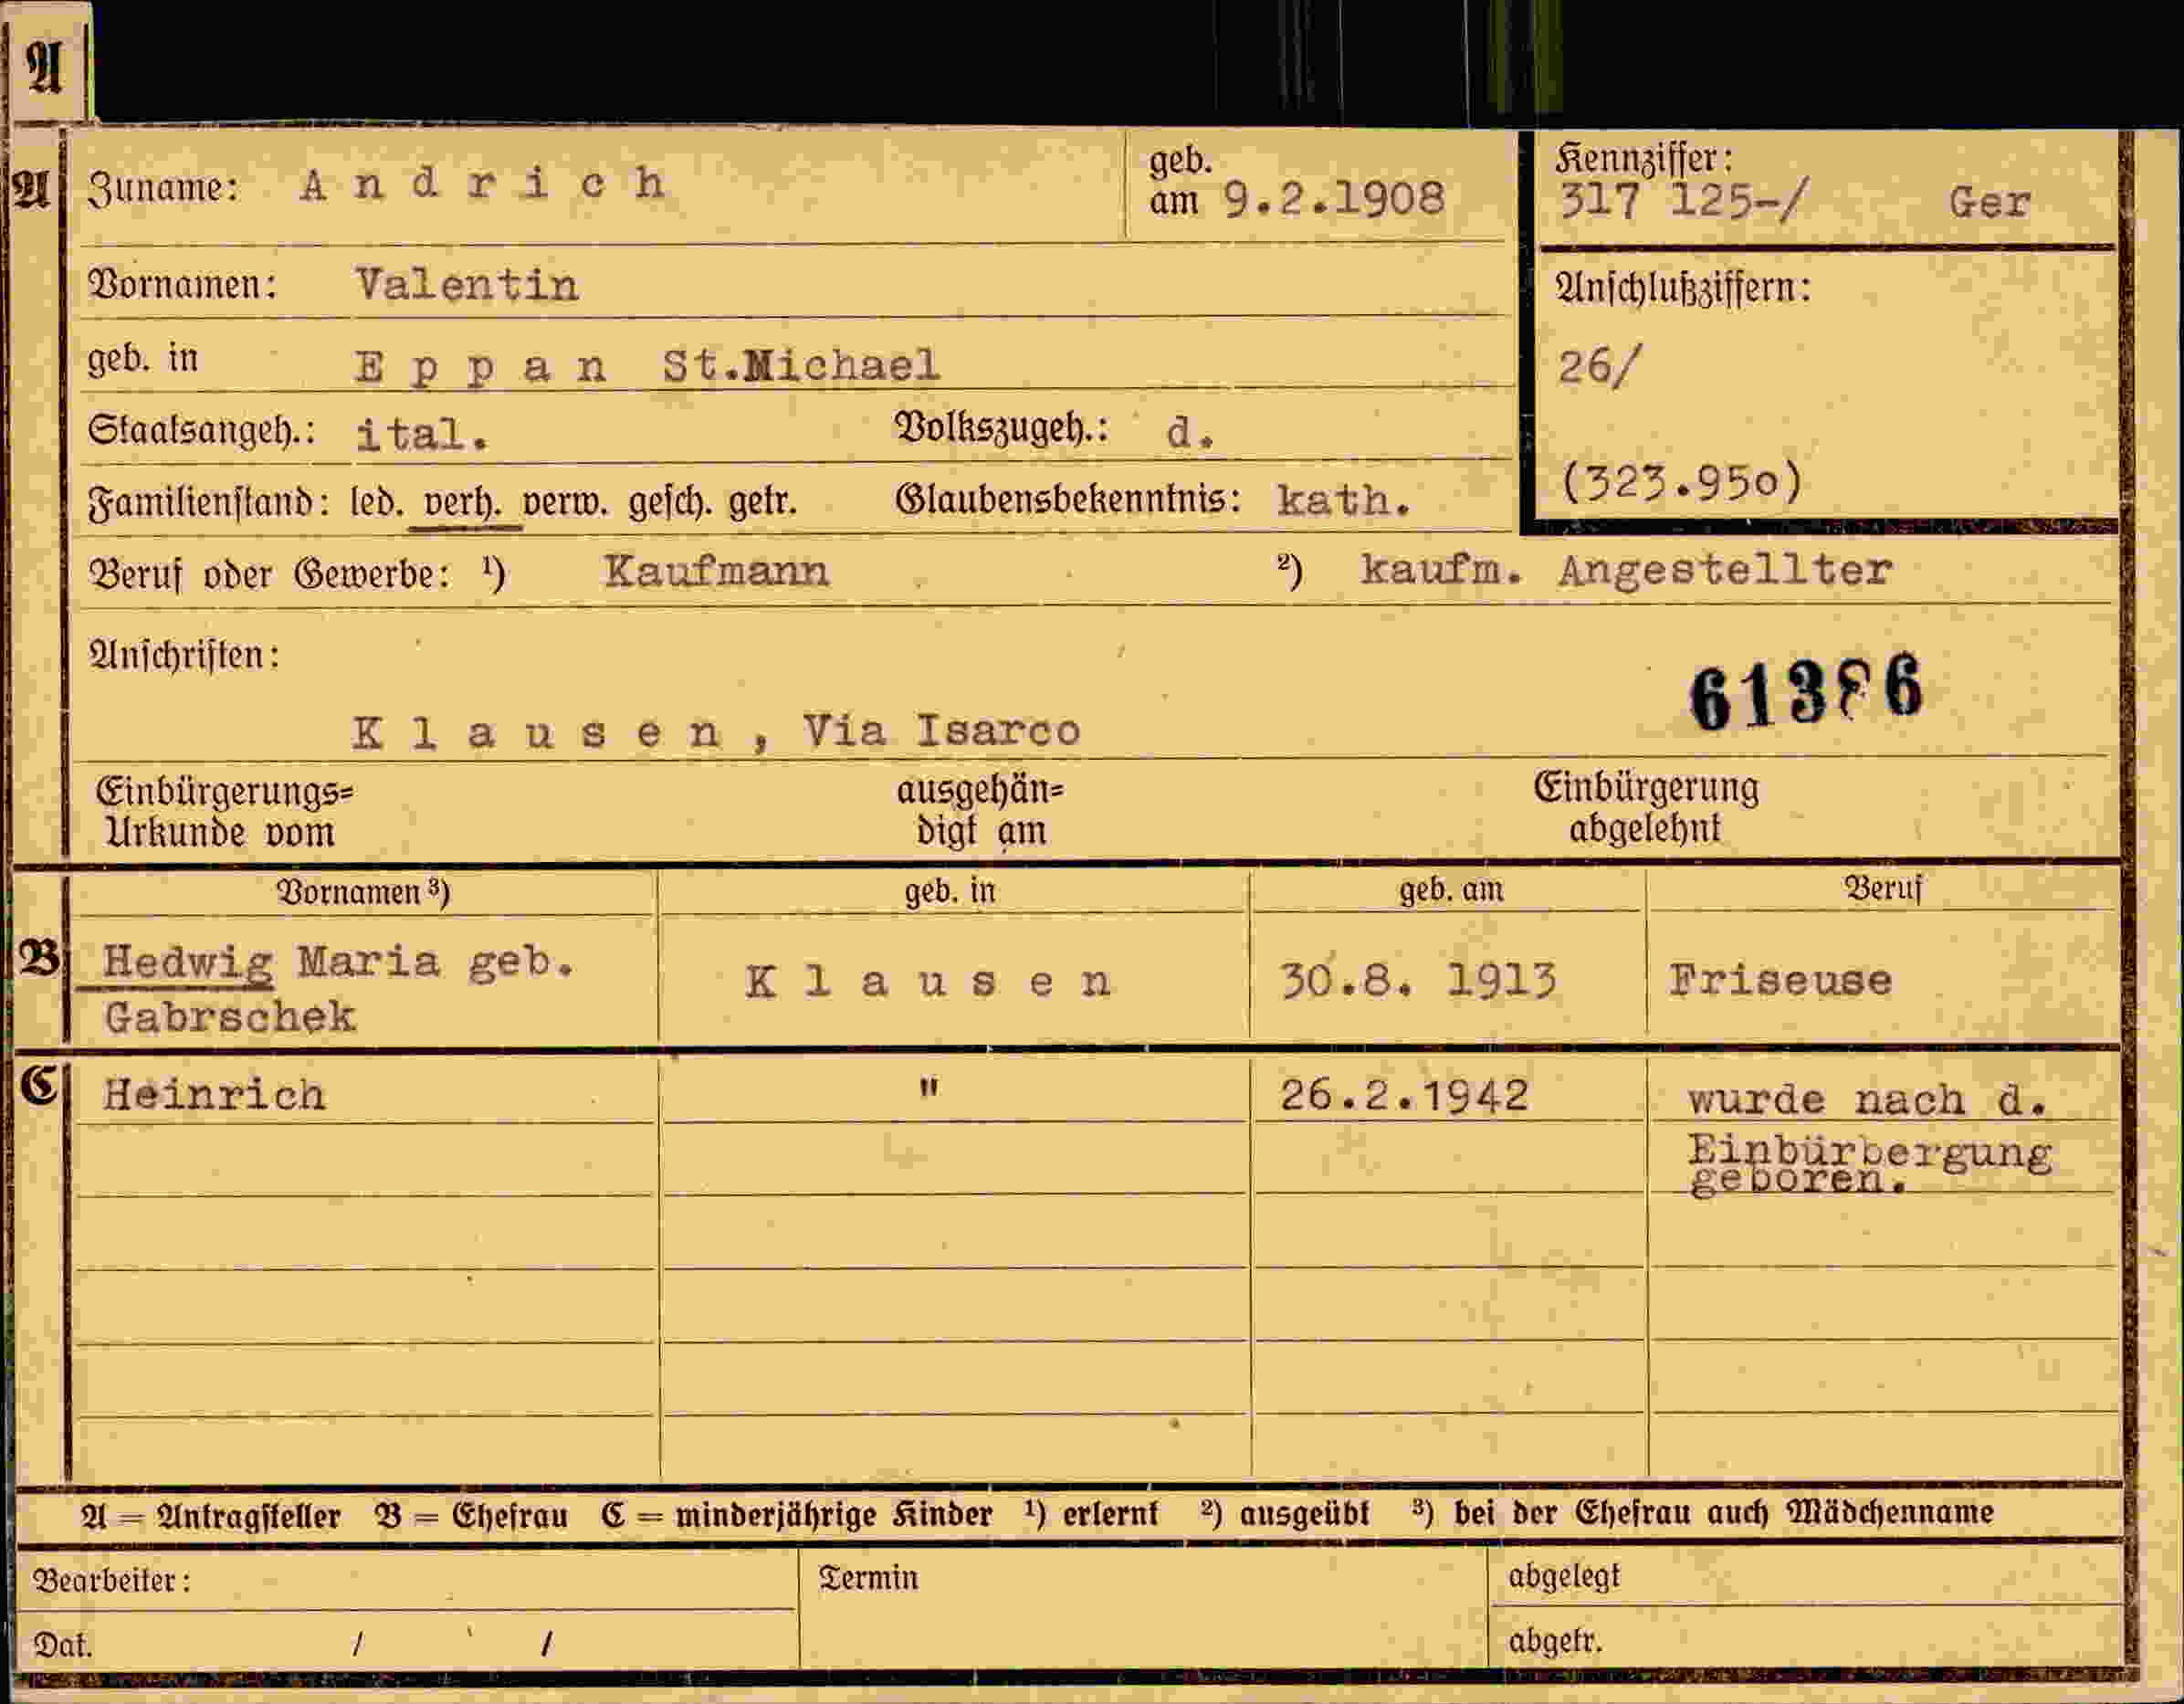 A
A
Zuname: Andrich
geb.
am 9.2.1908
Kennziffer:
317 125-/ Ger
Vornamen: Valentin
Anschlußziffern:
geb. in Eppan St.Michael
26/
Staatsangeh.: ital. Volkszugeh.: d.
(323.950)
Familienstand: led. verh. verw. gesch. getr. Glaubensbekenntnis: kath.
Beruf oder Gewerbe: ¹) Kaufmann ²) kaufm. Angestellter
Anschriften:
61386
Klausen, Via Isarco
Einbürgerungs= ausgehän= Einbürgerung
Urkunde vom digt am abgelehnt
Vornamen ³) geb. in geb. am Beruf
B Hedwig Maria geb. Klausen 30.8. 1913 Friseuse
Gabrschek
C Heinrich " 26.2.1942 wurde nach d.
Einbürbergung
geboren.
A = Antragsteller B = Ehefrau C = minderjährige Kinder ¹) erlernt ²) ausgeübt ³) bei der Ehefrau auch Mädchenname
Bearbeiter: Termin abgelegt
Dat. / / abgetr.